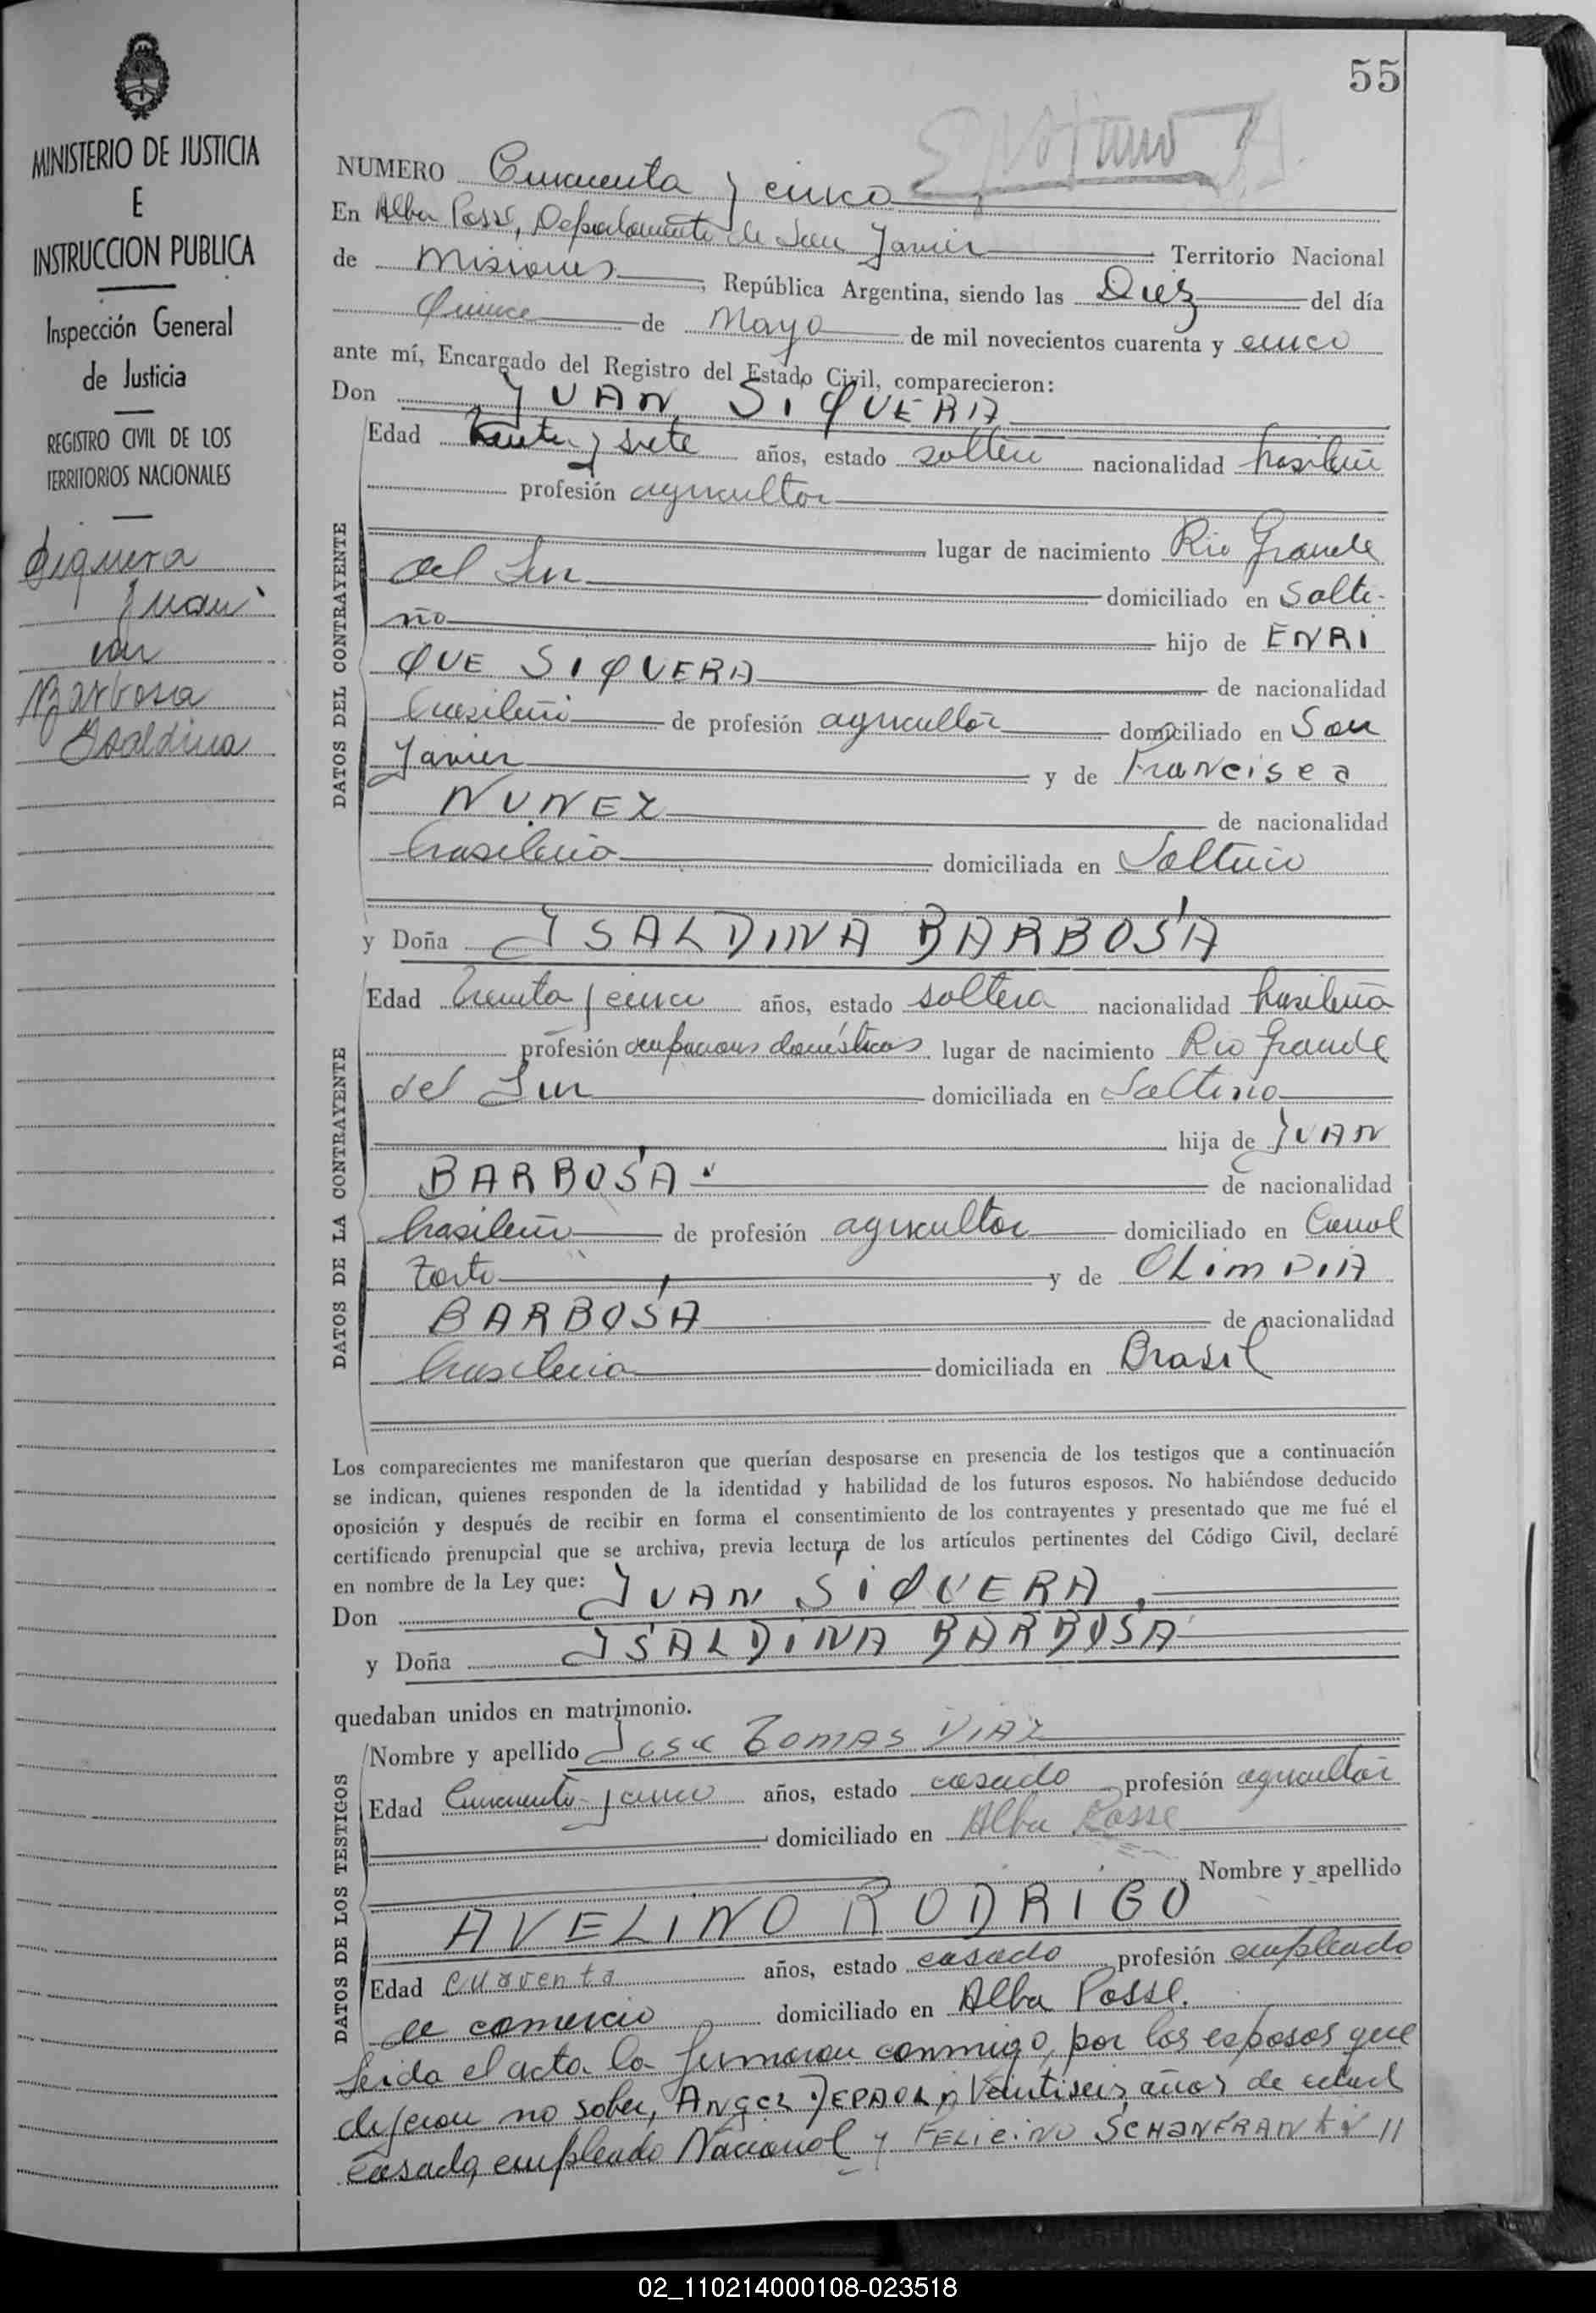 55
MINISTERIO DE JUSTICIA
E
INSTRUCCION PUBLICA
Inspección General
de Justicia
REGISTRO CIVIL DE LOS
TERRITORIOS NACIONALES
Siquera
Juan
con
Barbosa
Isaldina
NUMERO Cincuenta y cinco
En Alba Posse, Departamento de San Javier Territorio Nacional
de Misiones, República Argentina, siendo las Diez del día
Quince de Mayo de mil novecientos cuarenta y cinco
ante mí, Encargado del Registro del Estado Civil, comparecieron:
Don JUAN SIQUERA
DATOS DEL CONTRAYENTE
Edad treinta y siete años, estado soltero nacionalidad brasileño
profesión agricultor
lugar de nacimiento Rio Grande
del Sur domiciliado en Salti-
ño hijo de ENRI
QUE SIQUERA de nacionalidad
brasileño de profesión agricultor domiciliado en San
Javier y de Francisca
NUNEZ de nacionalidad
brasileña domiciliada en Saltiño
y Doña ISALDINA BARBOSA
DATOS DE LA CONTRAYENTE
Edad treinta y cinco años, estado soltera nacionalidad brasileña
profesión ocupaciones domésticas lugar de nacimiento Rio Grande
del Sur domiciliada en Saltino
hija de JUAN
BARBOSA de nacionalidad
brasileño de profesión agricultor domiciliado en Canal
Torto y de OLIMPIA
BARBOSA de nacionalidad
brasileña domiciliada en Brasil
Los comparecientes me manifestaron que querían desposarse en presencia de los testigos que a continuación
se indican, quienes responden de la identidad y habilidad de los futuros esposos. No habiéndose deducido
oposición y después de recibir en forma el consentimiento de los contrayentes y presentado que me fué el
certificado prenupcial que se archiva, previa lectura de los artículos pertinentes del Código Civil, declaré
en nombre de la Ley que:
Don JUAN SIQUERA,
y Doña ISALDINA BARBOSA
quedaban unidos en matrimonio.
DATOS DE LOS TESTIGOS
Nombre y apellido Jose TOMAS DIAZ
Edad Cincuenta y cinco años, estado casado profesión agricultor
domiciliado en Alba Posse
Nombre y apellido
AVELINO RODRIGO
Edad cuarenta años, estado casado profesión empleado
de comercio domiciliado en Alba Posse.
Leida el acta la firmaron conmigo, por los esposos que
dijeron no saber, ANGEL Veintiseis años de edad
casado, empleado Nacional y FELICINO
02_110214000108-023518